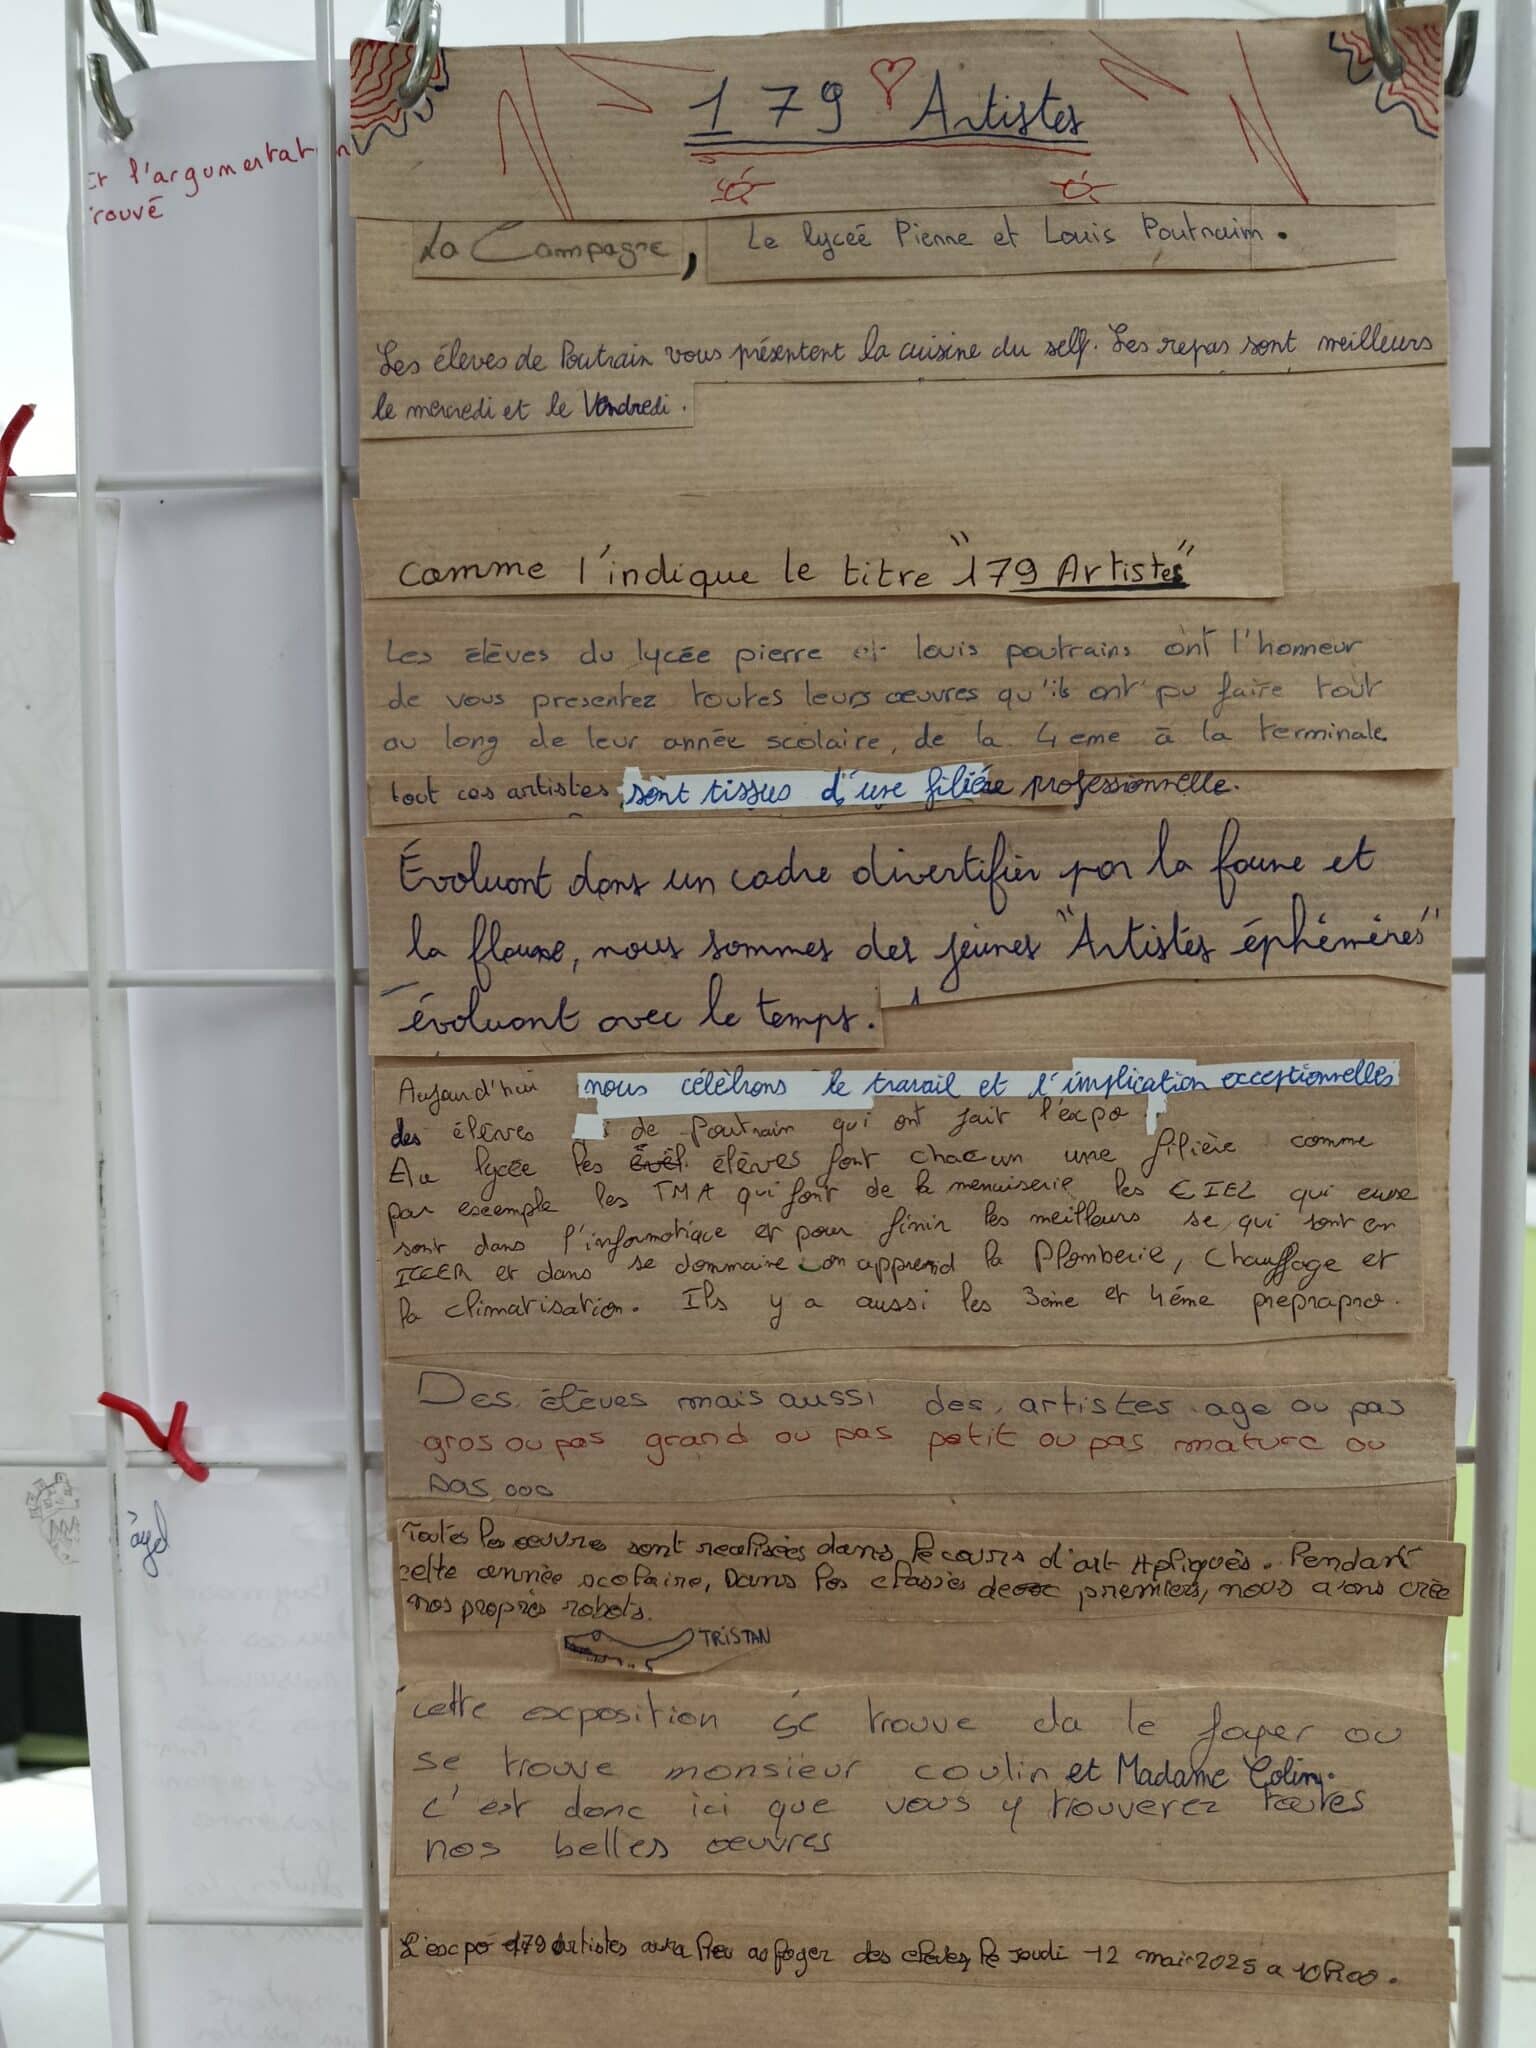 179 Artistes
La Campagne, Le lyceé Pierre et Louis Poutrain.
Les éleves de Poutrain vous présentent la cuisine du self. Les repas sont meilleurs
le mercredi et le Vendredi.
comme l'indique le titre "179 Artistes"
Les élèves du lycée pierre et louis poutrains ont l'honneur
de vous presentez toutes leurs œuvres qu'ils ont pu faire tout
au long de leur année scolaire, de la 4eme à la terminale
tout ces artistes sont tissus d'une filiére professionnelle.
Évoluant dans un cadre divertifier par la faune et
la flaure, nous sommes des jeunes "Artistes éphémères"
évoluant avec le temps.
Aujourd'hui nous célébrons le travail et l'implication exceptionnelles
des élèves de Poutrain qui ont fait l'expo
Au lycée les élèves font chacun une filière comme
par exemple les TMA qui font de la menuiserie les CIEL qui euse
sont dans l'informatique et pour finir les meilleurs se qui sont en
ICCER et dans se dommaine on apprend la Plomberie, Chauffage et
la climatisation. Ils y a aussi les 3ème et 4éme preprapro.
Des élèves mais aussi des artistes age ou pas
gros ou pas grand ou pas petit ou pas mature ou
pas ...
Toutes les œuvres sont realisées dans le cours d'art Apliqués. Pendant
cette année scolaire, Dans les classes de premiers, nous avons crée
nos propres robots.
TRISTAN
cette exposition se trouve da le foyer ou
se trouve monsieur coulin et Madame Colin.
c'est donc ici que vous y trouverez toutes
nos belles œuvres
L'expo 179 Artistes aura lieu au foyer des eleves, le jeudi 12 mai 2025 a 10h00.
Et l'argumentation
rouvé